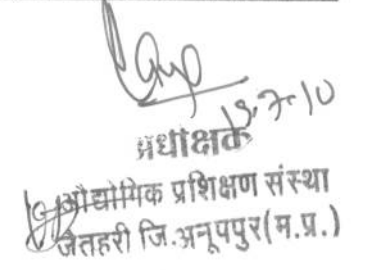 19.7.10
अधीक्षक
औद्योगिक प्रशिक्षण संस्था
जैतहरी जि.अनूपपुर(म.प्र.)